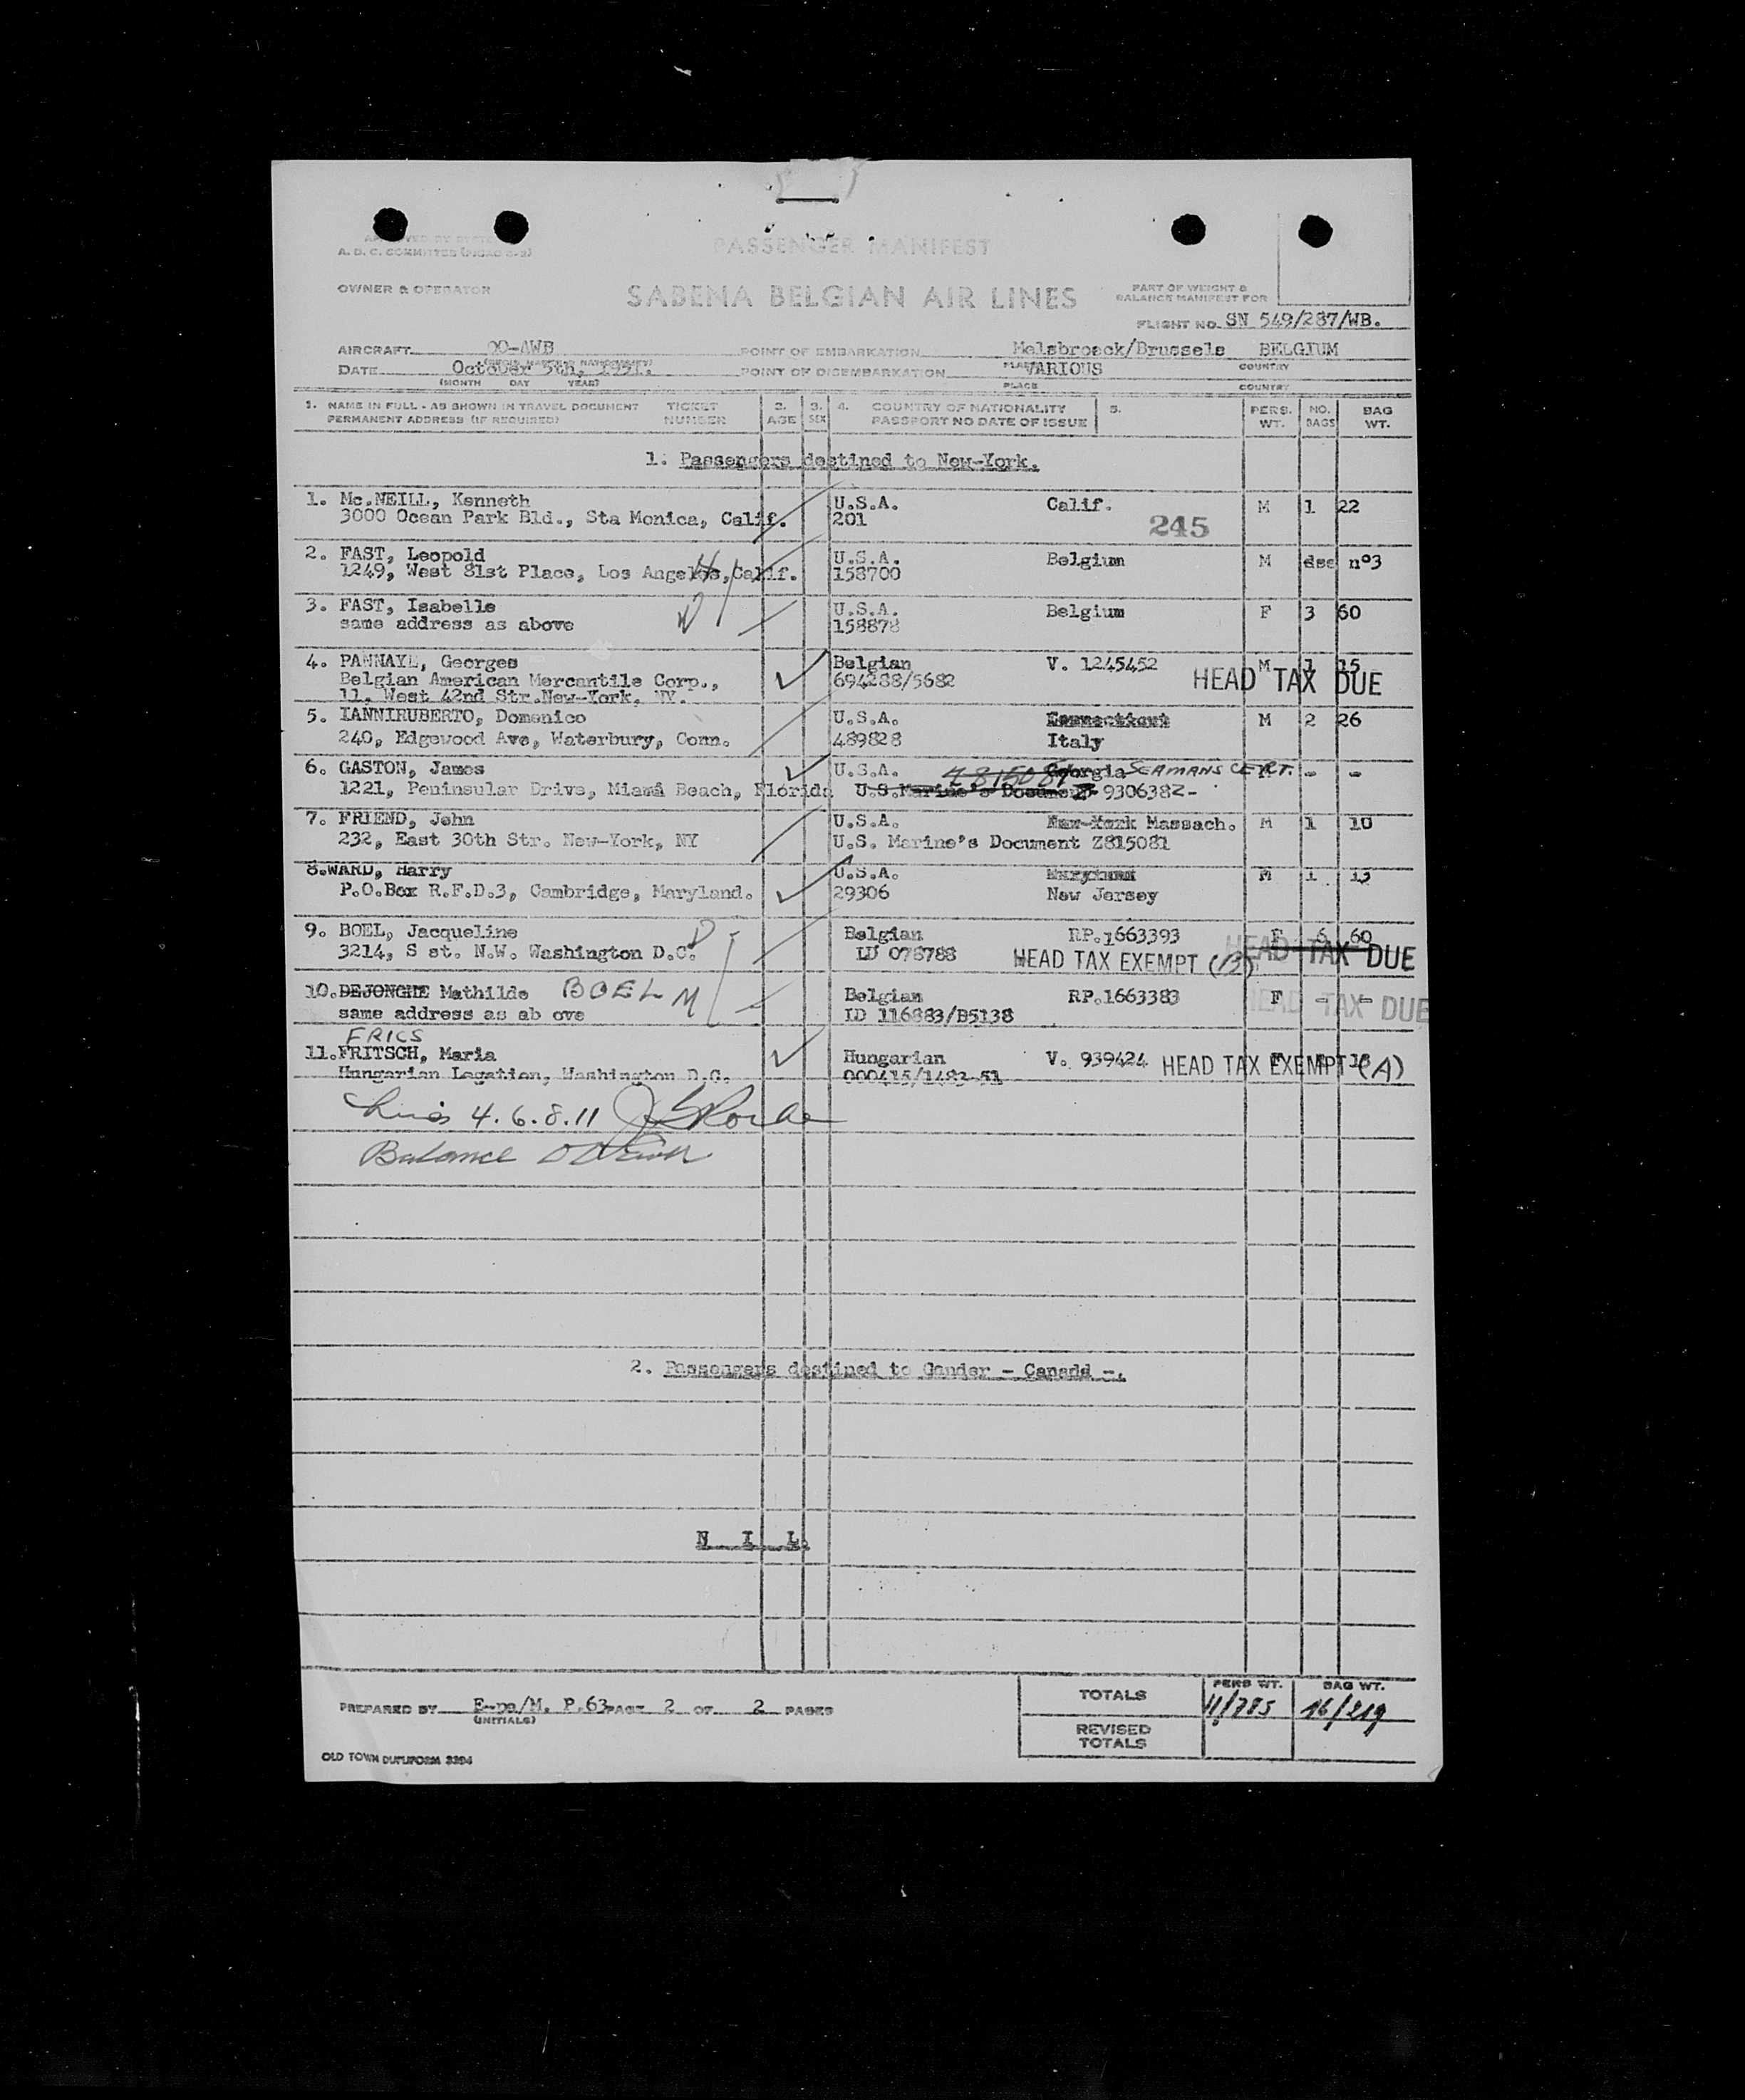 PASSENGER MANIFEST
A. D. C. COMMITTEE
OWNER & OPERATOR
SABENA BELGIAN AIR LINES
PART OF WEIGHT &
BALANCE MANIFEST FOR
FLIGHT NO. SN 549/287/WB.
AIRCRAFT OO-AWB POINT OF EMBARKATION Melsbroeck/Brussels BELGIUM
DATE October 5th, 1951. POINT OF DISEMBARKATION PLACE VARIOUS COUNTRY
(MONTH DAY YEAR) PLACE COUNTRY
1. NAME IN FULL - AS SHOWN IN TRAVEL DOCUMENT TICKET 2. 3. 4. COUNTRY OF NATIONALITY 5. PERS. NO. BAG
PERMANENT ADDRESS (IF REQUIRED) NUMBER AGE SEX PASSPORT NO DATE OF ISSUE WT. BAGS WT.
1. Passengers destined to New-York.
1. Mc.NEILL, Kenneth U.S.A. Calif. M 1 22
3000 Ocean Park Bld., Sta Monica, Calif. 201 245
2. FAST, Leopold U.S.A. Belgium M dsc n°3
1249, West 81st Place, Los Angeles, Calif. 158700
3. FAST, Isabelle U.S.A. Belgium F 3 60
same address as above 158878
4. PANNAYE, Georges Belgian V. 1245452 M 1 15
Belgian American Mercantile Corp., 694288/5682 HEAD TAX DUE
11, West 42nd Str.New-York, NY.
5. IANNIRUBERTO, Domenico U.S.A. Connecticut M 2 26
240, Edgewood Ave, Waterbury, Conn. 489828 Italy
6. GASTON, James U.S.A. Georgia SEAMANS CERT. - -
1221, Peninsular Drive, Miami Beach, Florida U.S.Marine's Document 930638Z-
7. FRIEND, John U.S.A. New-York Massach. M 1 10
232, East 30th Str. New-York, NY U.S. Marine's Document Z815081
8.WARD, Harry U.S.A. Maryland M 1 13
P.O.Box R.F.D.3, Cambridge, Maryland. 29306 New Jersey
9. BOEL, Jacqueline Belgian RP.1663393 F 6 60
3214, S st. N.W. Washington D.C. ID 078788 HEAD TAX EXEMPT (B) HEAD TAX DUE
10.DEJONGHE Mathilde BOEL M Belgian RP.1663383 F - -
same address as ab ove ID 116883/B5138 HEAD TAX DUE
ERICS
11.FRITSCH, Maria Hungarian V. 939424 HEAD TAX EXEMPT (A)
Hungarian Legation, Washington D.C. 000415/1483-51
4. 6. 8. 11
Balance
2. Passengers destined to Gander - Canada -.
N I L.
PREPARED BY E-pa/M. P.63 PAGE 2 OF 2 PAGES
(INITIALS)
TOTALS PERS WT. 11/785 BAG WT. 16/219
REVISED
TOTALS
OLD TOWN DUPLIFORM 3394